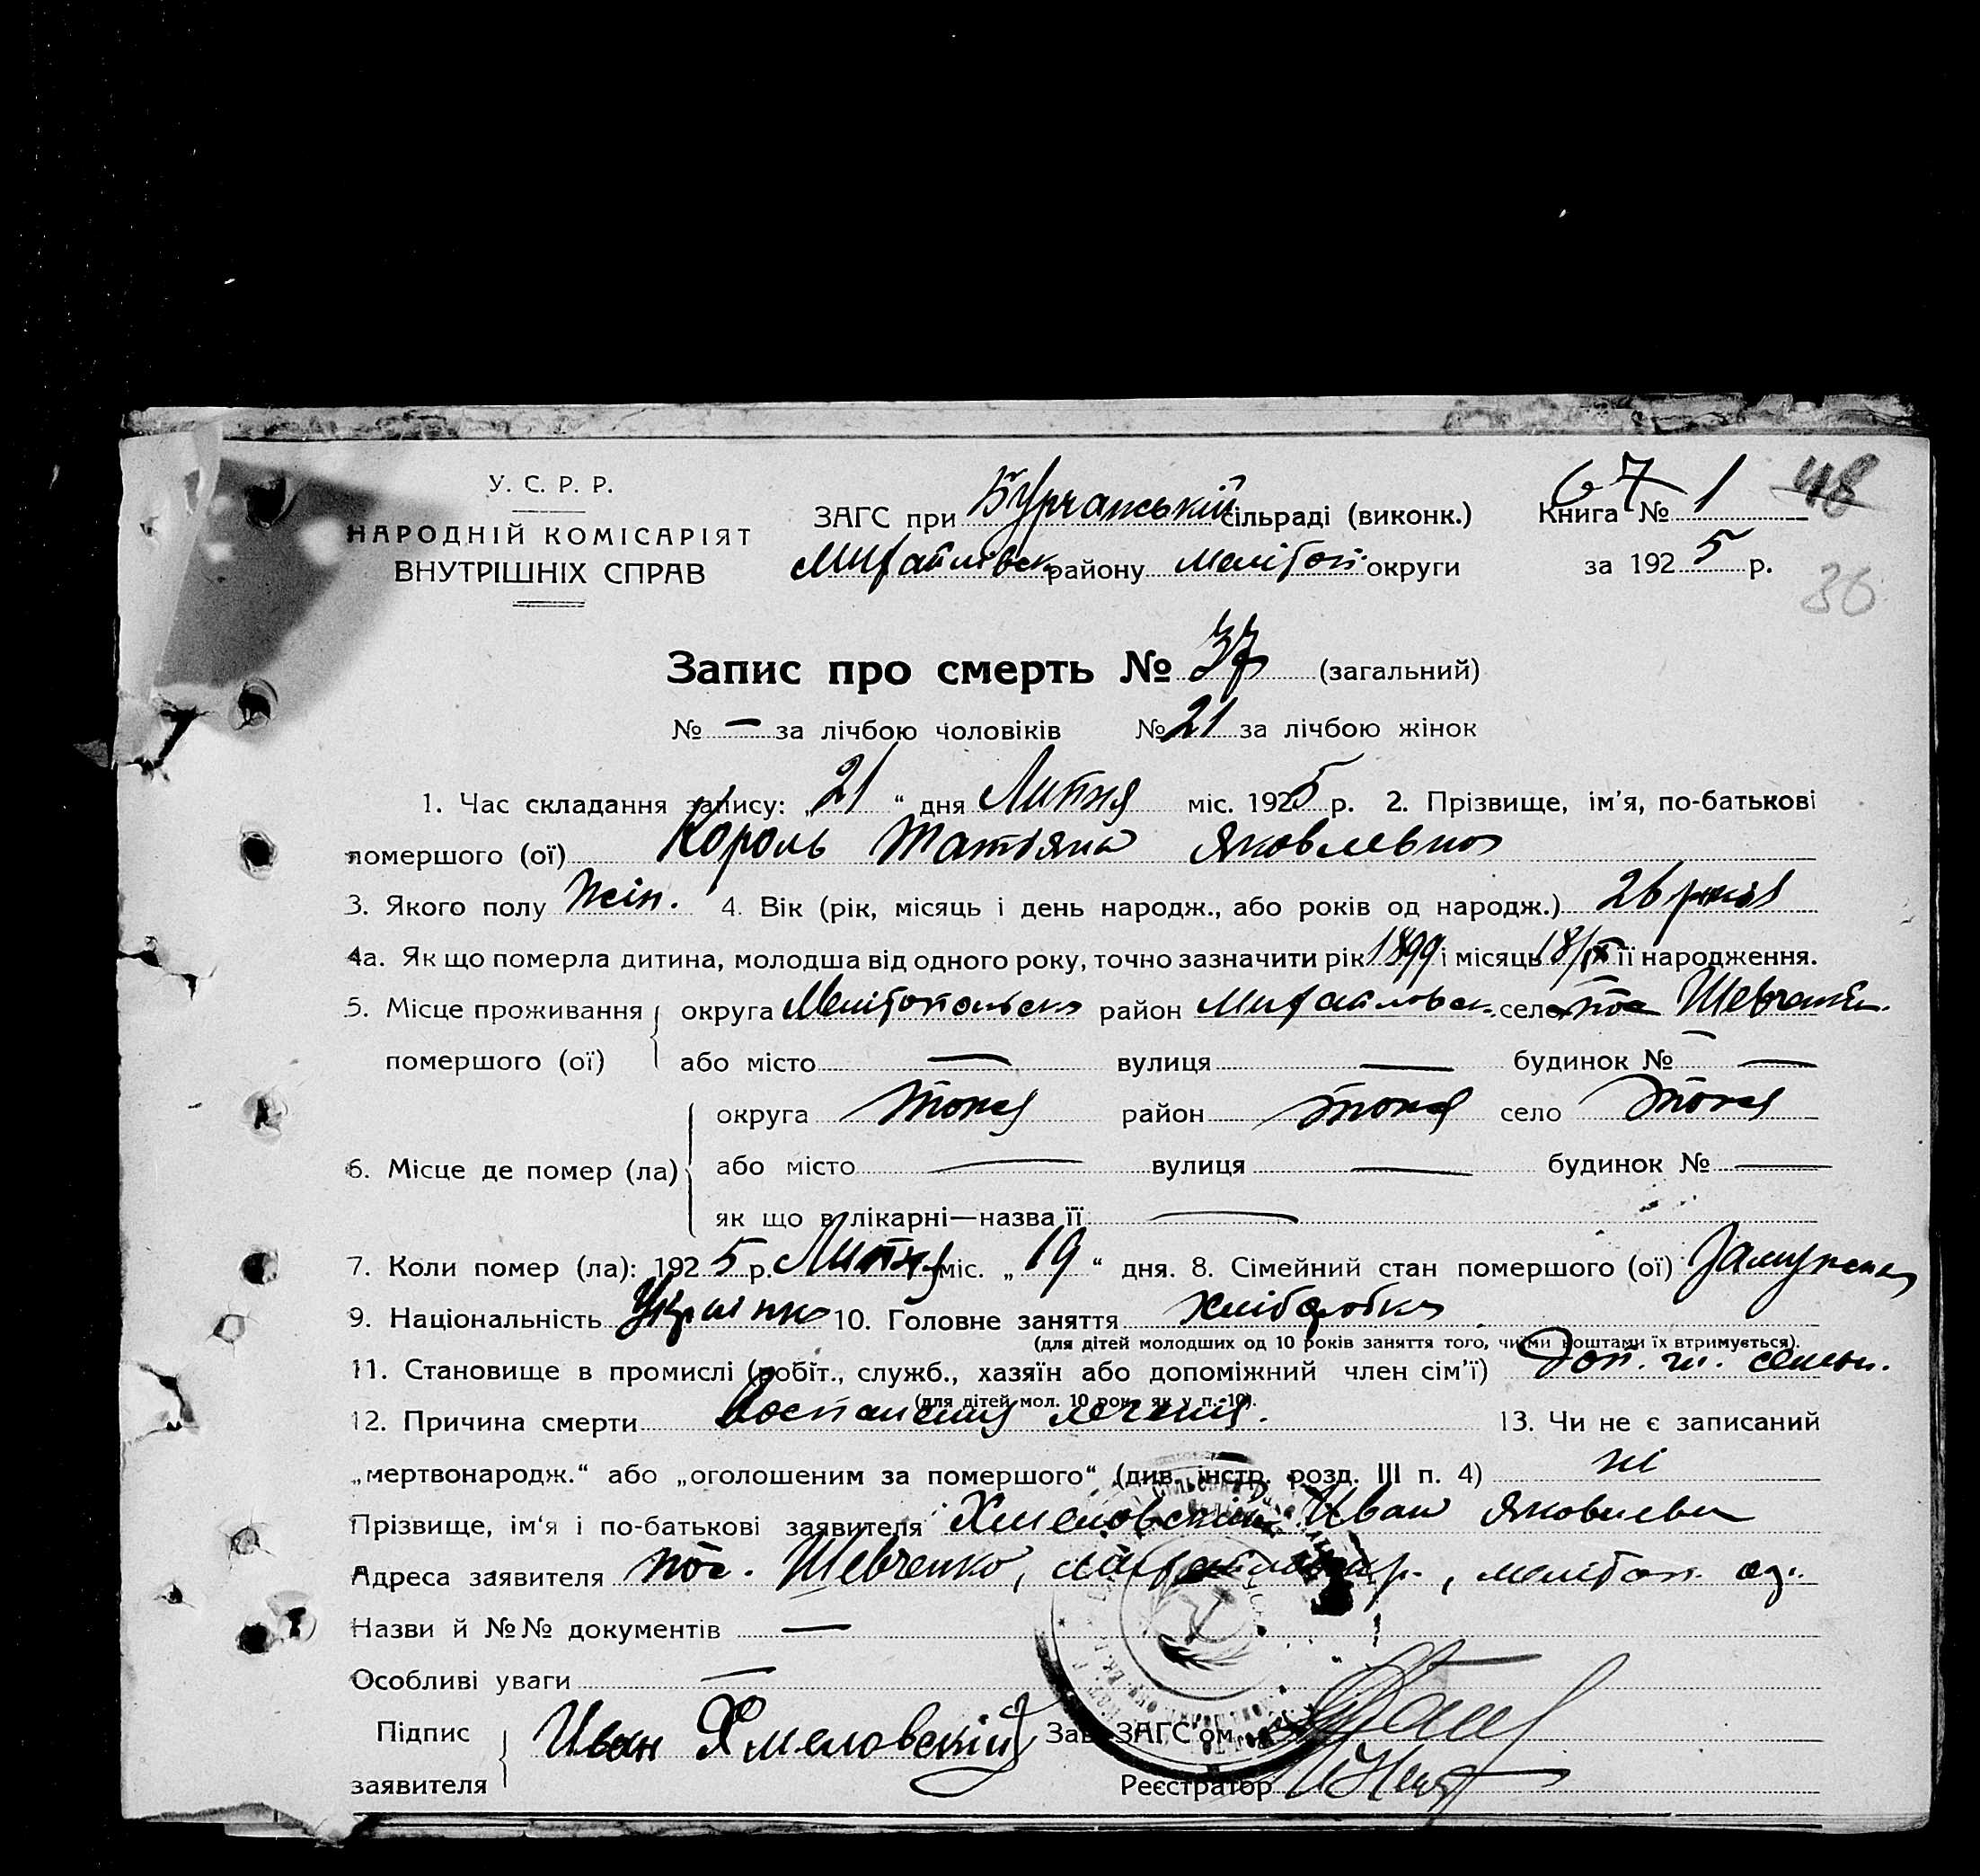 У. С. Р. Р.
НАРОДНІЙ КОМІСАРІЯТ
ВНУТРІШНІХ СПРАВ
ЗАГС при Бурчанській сільраді (виконк.)
Михайлівськ району Мелітоп. округи
67
Книга № 1 48
за 1925 р.
36
Запис про смерть № 37 (загальний)
№ — за лічбою чоловіків № 21 за лічбою жінок
1. Час складання запису: „21“ дня Липня міс. 1925 р. 2. Прізвище, ім'я, по-батькові
помершого (ої) Король Татіяна Яковлевна
3. Якого полу жін. 4. Вік (рік, місяць і день народж., або років од народж.) 26 років
4а. Як що померла дитина, молодша від одного року, точно зазначити рік 1899 і місяць 18/IX її народження.
5. Місце проживання округа Мелітопольська район Михайловск. село пос Шевченк.
помершого (ої) або місто — вулиця — будинок № —
округа тоже район тоже село тоже
6. Місце де помер (ла) або місто — вулиця — будинок № —
як що в лікарні—назва її —
7. Коли помер (ла): 1925 р. Липня міс. „19“ дня. 8. Сімейний стан помершого (ої) Замужня
9. Національність Українка 10. Головне заняття хліборобка
(для дітей молодших од 10 років заняття того, чиїми коштами їх втримується).
11. Становище в промислі (робіт., служб., хазяїн або допоміжний член сім'ї) Доп. чл. семьи.
(для дітей мол. 10 рок. як у п. 10).
12. Причина смерти Воспаления легких. 13. Чи не є записаний
„мертвонародж.“ або „оголошеним за помершого“ (див. інстр. розд. III п. 4) ні
Прізвище, ім'я і по-батькові заявителя Хмеловский Иван Яковлевич
Адреса заявителя пос. Шевченко, р., мелітоп. ок.
Назви й №№ документів —
Особливі уваги —
Підпис Иван Хмеловский Зав. ЗАГС'ом
заявителя Реєстратор